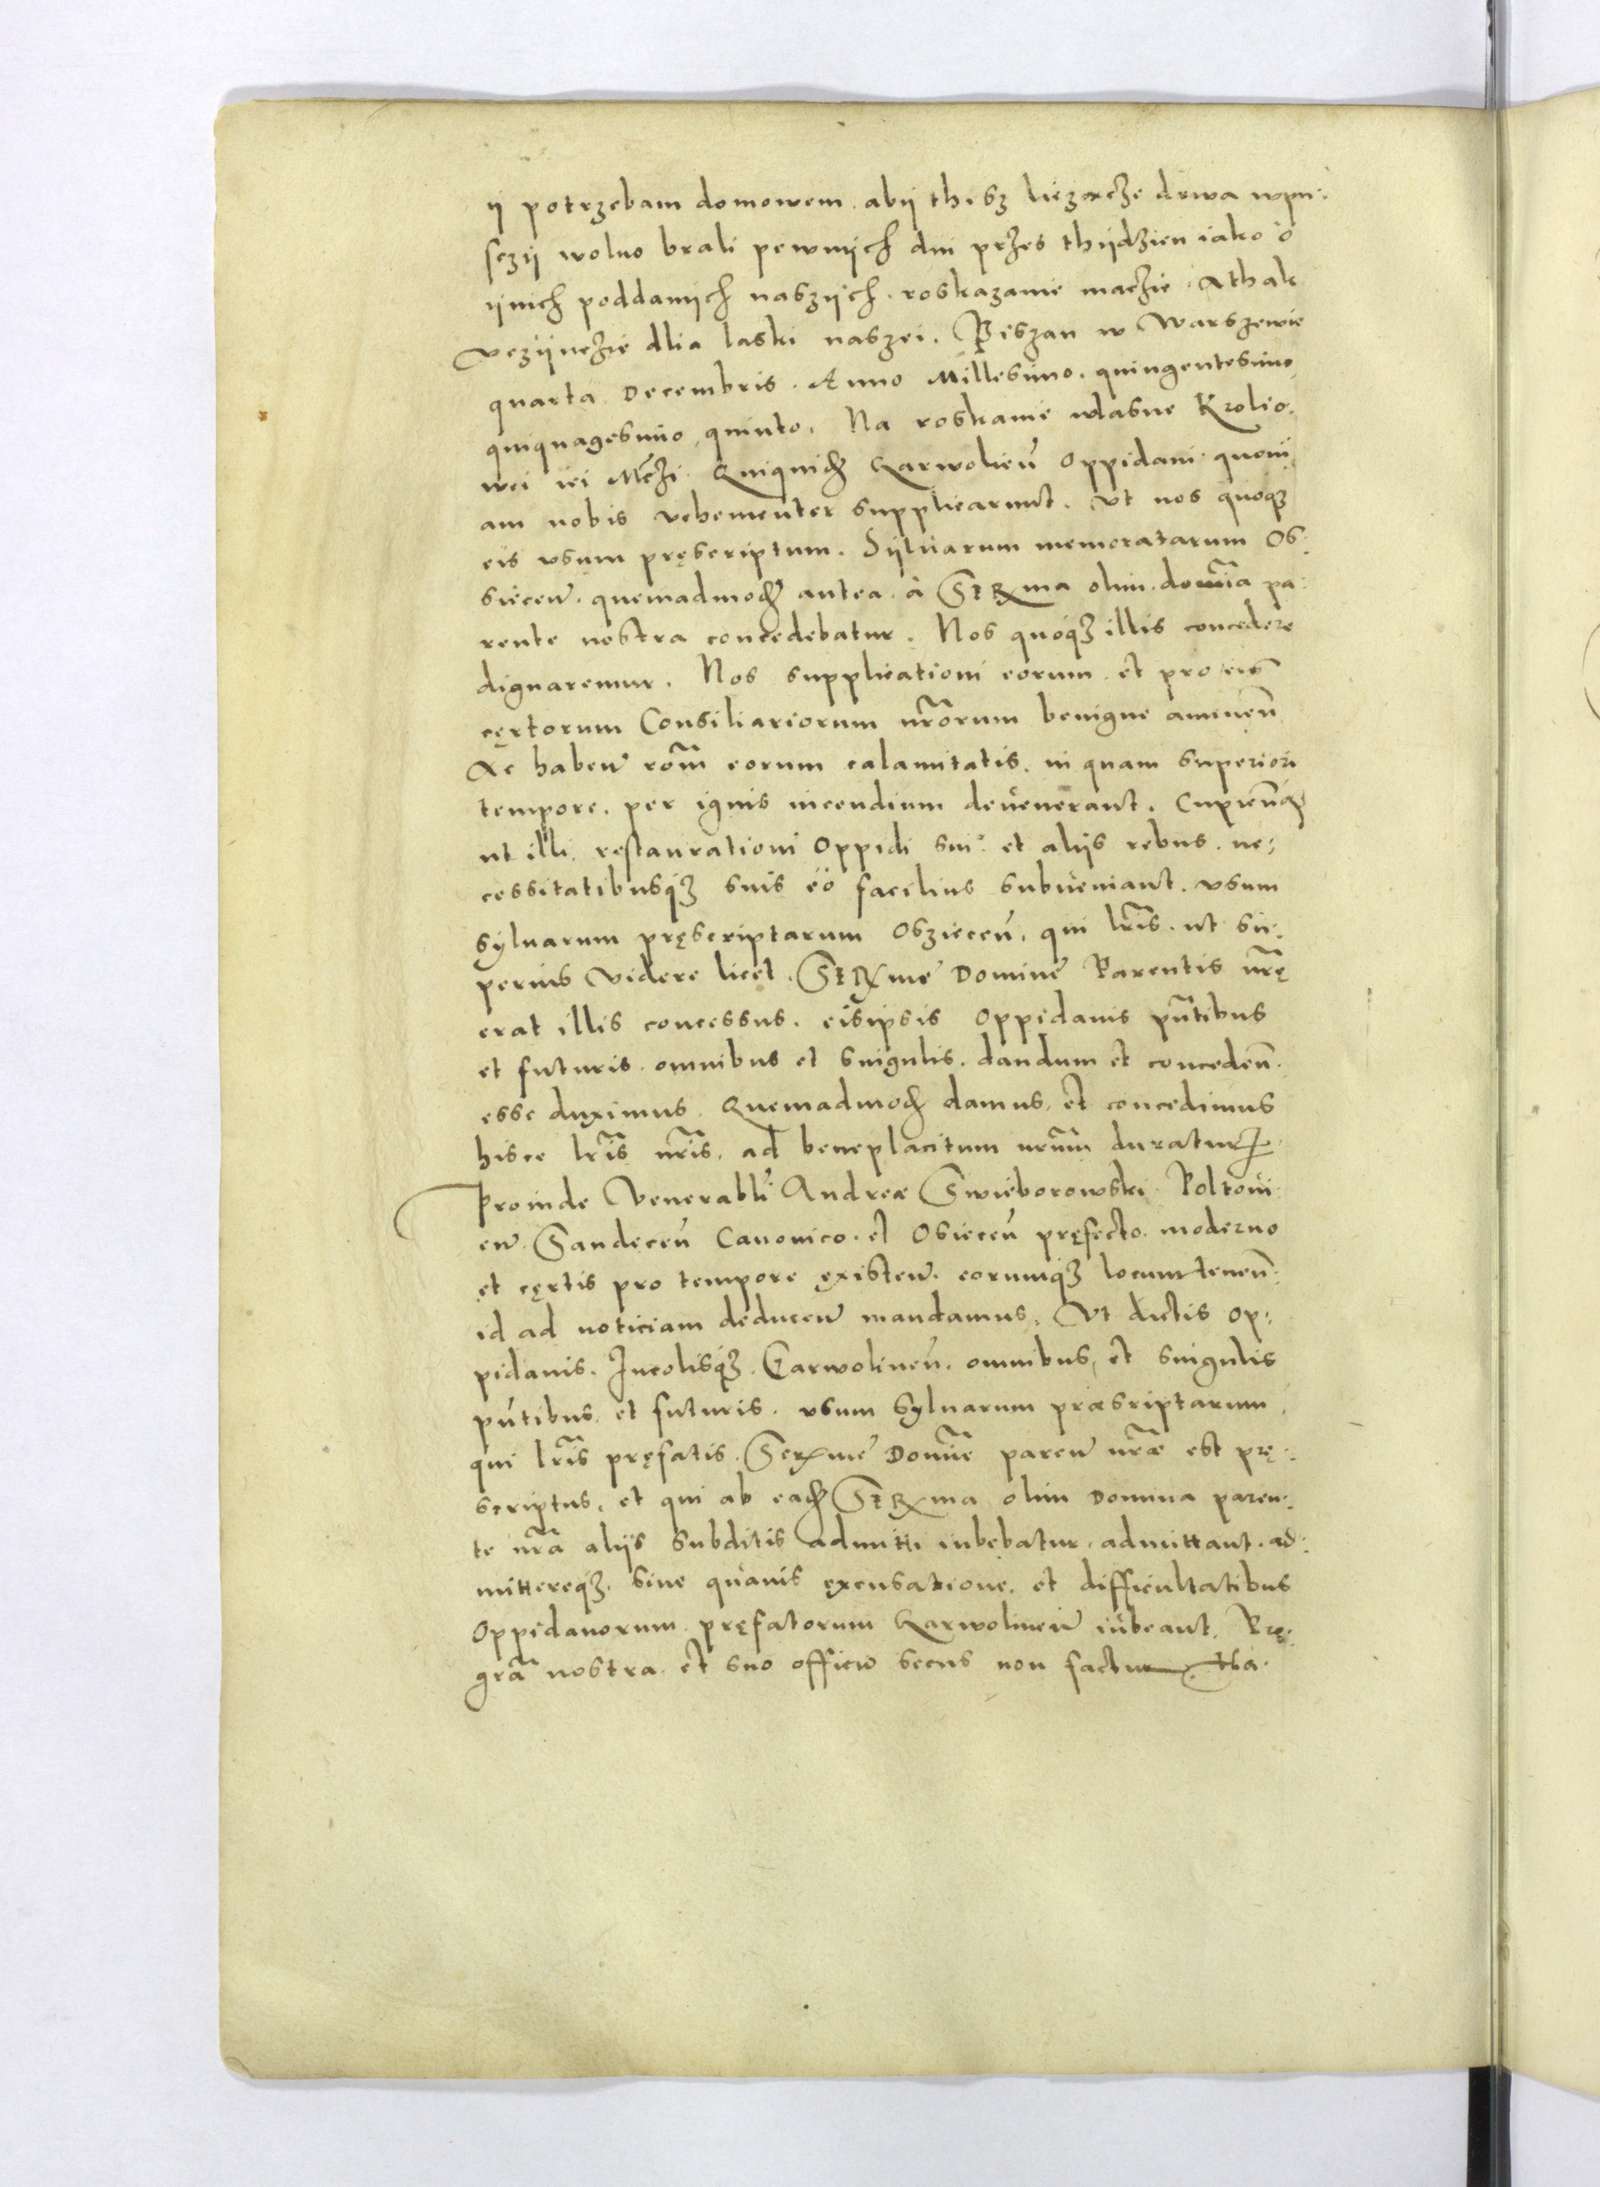 ij potrzebam domowem. abij th. sz liezącze drwa wpu-
sczij wolno brali pewnijch dni przes thijdzien iako o
ijnich poddanijch naszijch. roskazanie maczie. Athak
vczijnczie dlia laski naszei. Piszan w Warszewie
quarta Decembris. Anno Millesimo. quingentesimo
quiquagesimo quinto. Na roskanie własne Krolio-
wei iei Mczi. Quiquidem Garwolieñ Oppidani quoni
am nobis vehementer supplicarunt. Vt nos quoqz
eis vsum pręscriptum. Sijluarum memoratarum Os-
siecen. quemadmodum antea. à Serma olim domina pa-
rente nostra concedebatur. Nos quoqz illis concedere
dignaremur. Nos supplicationi eorum et pro eis
cęrtorum Consiliariorum nrorum benigne annuen
Ac haben rom eorum calamitatis. in quam superiori
tempore. per ignis incendium devenerant. Cupienqz
ut illi restaurationi Oppidi sui et aliis rebus. ne-
cessitatibusqz suis eò facilius subveniant. vsum
sylvarum pręscriptarum Oszieceñ. qui lris. ut su-
perius videre licet. Sermę Dominę Parentis nrę
erat illis concessus. eisipsis Oppidanis pñtibus
et futuris. omnibus et singulis. dandum et conceden.
esse duximus. Quemadmodum damus. et concedimus
hisce lris nris. ad beneplacitum nrum duratur.
Proinde Venerabli Andreæ Swieborowski Poltoui-
en. Sandeceñ Canonico. et Osieceñ pręfecto. moderno
et cęrtis pro tempore existen. eorumqz locumtenen.
id ad noticiam deducen mandamus. Vt dictis Op-
pidanis. Incolisqz Garwolineñ. omnibus et singulis
pñtibus et futuris. vsum Sylvarum præsriptarum
qui lris pręfatis. Sermę Dominę paren nræ est prę-
scriptus. et qui ab eadem Serma olim Domina paren-
te nra aliis subditis admitti iubebatur. admittant. ad-
mittereqz. sine quavis excusatione. et difficultatibus
Oppidanorum pręfatorum Garwolineñ iubeant. Prę
gra nostra et suo officio secus non factur